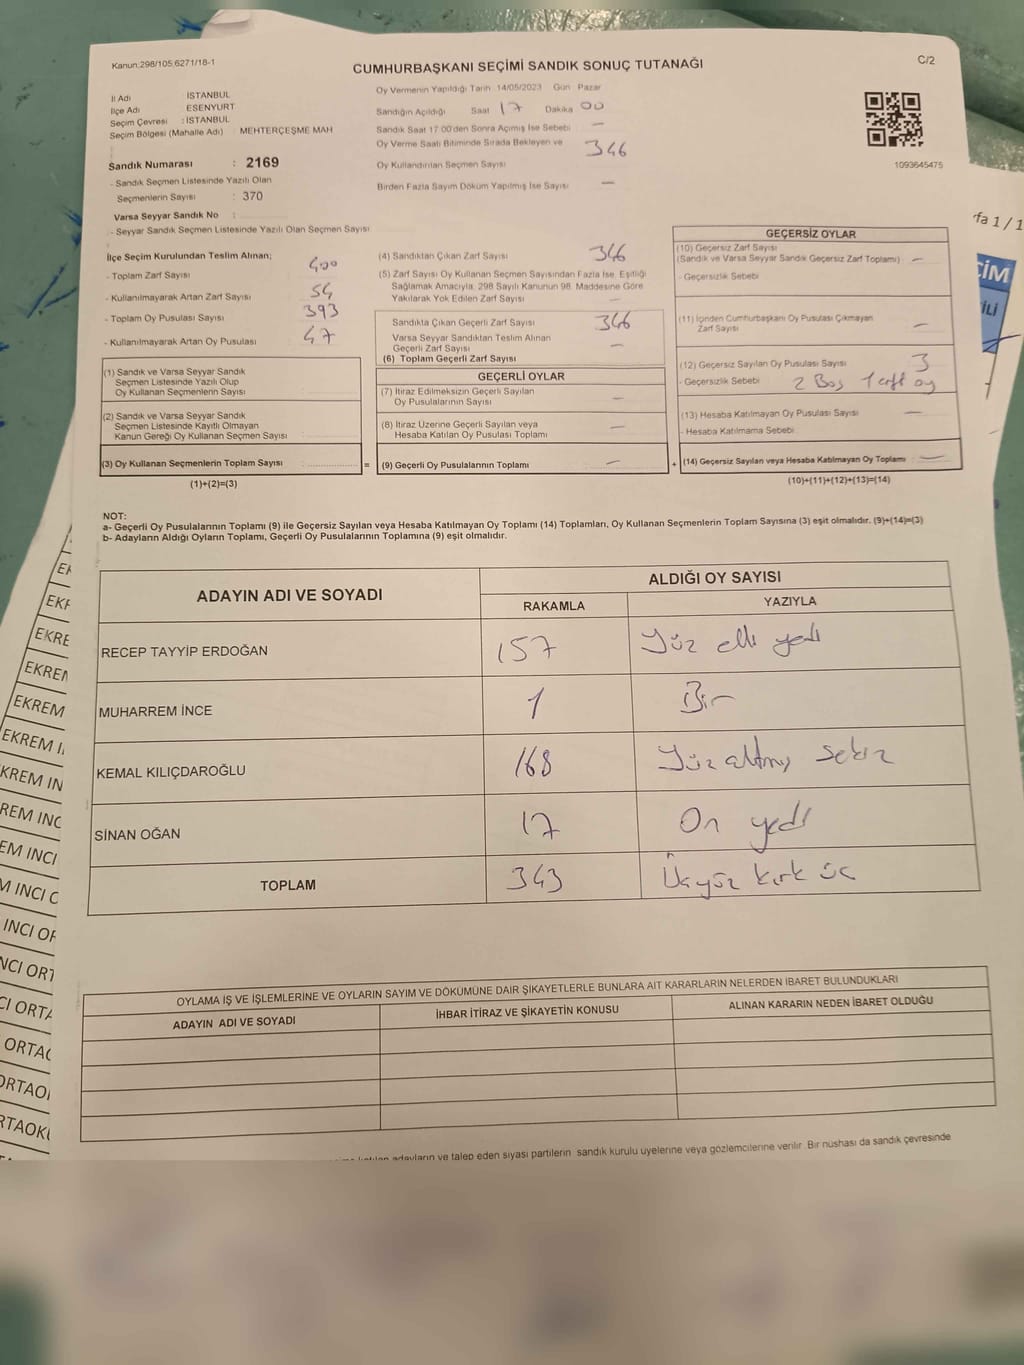 Kanun:298/105,6271/18-1
CUMHURBAŞKANI SEÇİMİ SANDIK SONUÇ TUTANAĞI
C/2
İl Adı İSTANBUL
İlçe Adı ESENYURT
Seçim Çevresi : İSTANBUL
Seçim Bölgesi (Mahalle Adı) : MEHTERÇEŞME MAH
Sandık Numarası : 2169
- Sandık Seçmen Listesinde Yazılı Olan
Seçmenlerin Sayısı : 370
Varsa Seyyar Sandık No :
- Seyyar Sandık Seçmen Listesinde Yazılı Olan Seçmen Sayısı
Oy Vermenin Yapıldığı Tarih 14/05/2023 Gün Pazar
Sandığın Açıldığı Saat 17 Dakika 00
Sandık Saat 17 00'den Sonra Açımış İse Sebebi —
Oy Verme Saati Bitiminde Sırada Bekleyen ve
Oy Kullandırılan Seçmen Sayısı 346
Birden Fazla Sayım Döküm Yapılmış İse Sayısı —
1093645475
İlçe Seçim Kurulundan Teslim Alınan;
- Toplam Zarf Sayısı 400
- Kullanılmayarak Artan Zarf Sayısı 54
- Toplam Oy Pusulası Sayısı 393
- Kullanılmayarak Artan Oy Pusulası 47
(1) Sandık ve Varsa Seyyar Sandık
Seçmen Listesinde Yazılı Olup
Oy Kullanan Seçmenlerin Sayısı
(2) Sandık ve Varsa Seyyar Sandık
Seçmen Listesinde Kayıtlı Olmayan
Kanun Gereği Oy Kullanan Seçmen Sayısı :
(3) Oy Kullanan Seçmenlerin Toplam Sayısı :
(1)+(2)=(3)
(4) Sandıktan Çıkan Zarf Sayısı 346
(5) Zarf Sayısı Oy Kullanan Seçmen Sayısından Fazla İse, Eşitliği
Sağlamak Amacıyla, 298 Sayılı Kanunun 98. Maddesine Göre
Yakılarak Yok Edilen Zarf Sayısı —
Sandıkta Çıkan Geçerli Zarf Sayısı 346
Varsa Seyyar Sandıktan Teslim Alınan
Geçerli Zarf Sayısı —
(6) Toplam Geçerli Zarf Sayısı
GEÇERLİ OYLAR
(7) İtiraz Edilmeksizin Geçerli Sayılan
Oy Pusulalarının Sayısı —
(8) İtiraz Üzerine Geçerli Sayılan veya
Hesaba Katılan Oy Pusulası Toplamı —
= (9) Geçerli Oy Pusulalarının Toplamı —
GEÇERSİZ OYLAR
(10) Geçersiz Zarf Sayısı
(Sandık ve Varsa Seyyar Sandık Geçersiz Zarf Toplamı) —
- Geçersizlik Sebebi
(11) İçinden Cumhurbaşkanı Oy Pusulası Çıkmayan
Zarf Sayısı —
(12) Geçersiz Sayılan Oy Pusulası Sayısı 3
- Geçersizlik Sebebi 2 Boş 1 çift oy
(13) Hesaba Katılmayan Oy Pusulası Sayısı —
- Hesaba Katılmama Sebebi
+ (14) Geçersiz Sayılan veya Hesaba Katılmayan Oy Toplamı —
(10)+(11)+(12)+(13)=(14)
NOT:
a- Geçerli Oy Pusulalarının Toplamı (9) ile Geçersiz Sayılan veya Hesaba Katılmayan Oy Toplamı (14) Toplamları, Oy Kullanan Seçmenlerin Toplam Sayısına (3) eşit olmalıdır. (9)+(14)=(3)
b- Adayların Aldığı Oyların Toplamı, Geçerli Oy Pusulalarının Toplamına (9) eşit olmalıdır.
ADAYIN ADI VE SOYADI
ALDIĞI OY SAYISI
RAKAMLA YAZIYLA
RECEP TAYYİP ERDOĞAN 157 Yüz elli yedi
MUHARREM İNCE 1 Bir
KEMAL KILIÇDAROĞLU 168 Yüz altmış sekiz
SİNAN OĞAN 17 On yedi
TOPLAM 343 Üçyüz kırk üç
OYLAMA İŞ VE İŞLEMLERİNE VE OYLARIN SAYIM VE DÖKÜMÜNE DAİR ŞİKAYETLERLE BUNLARA AİT KARARLARIN NELERDEN İBARET BULUNDUKLARI
ADAYIN ADI VE SOYADI İHBAR İTİRAZ VE ŞİKAYETİN KONUSU ALINAN KARARIN NEDEN İBARET OLDUĞU
adayların ve talep eden siyasi partilerin sandık kurulu üyelerine veya gözlemcilerine verilir. Bir nüshası da sandık çevresinde
rfa 1 / 1
ÇİM
İLİ
EK
EKF
EKRE
EKREM
EKREM
EKREM İ
KREM IN
REM INC
EM INCI
M INCI O
INCI OF
NCI ORT
CI ORTA
ORTAO
ORTAOI
RTAOKU